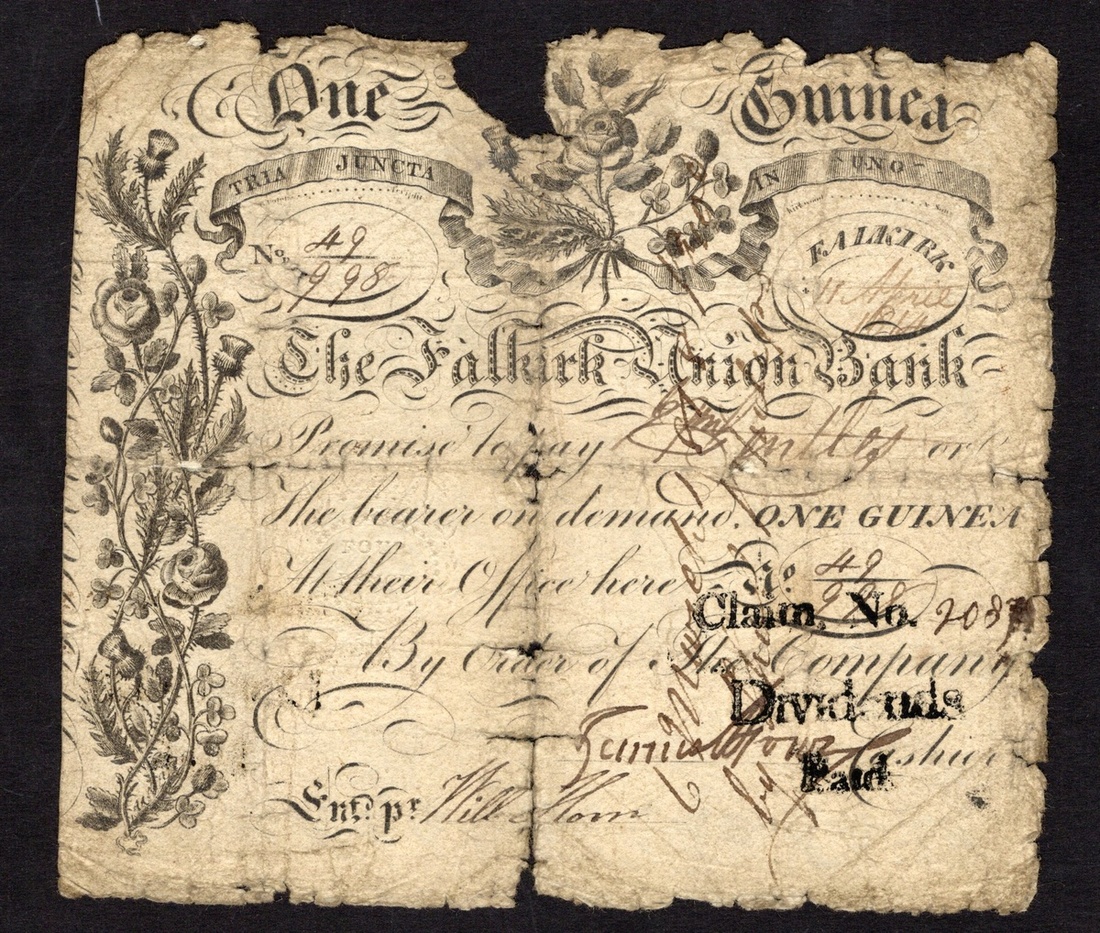 One Guinea
TRIA JUNCTA IN UNO
No. 49/998
FALKIRK
11 April
1814
The Falkirk Union Bank
Promise to pay or
The bearer on demand, ONE GUINEA
At their Office here No. 49/998
Claim, No. 208
By Order of The Company
Dividends
Cashier
Paid
Entd. pr. Will